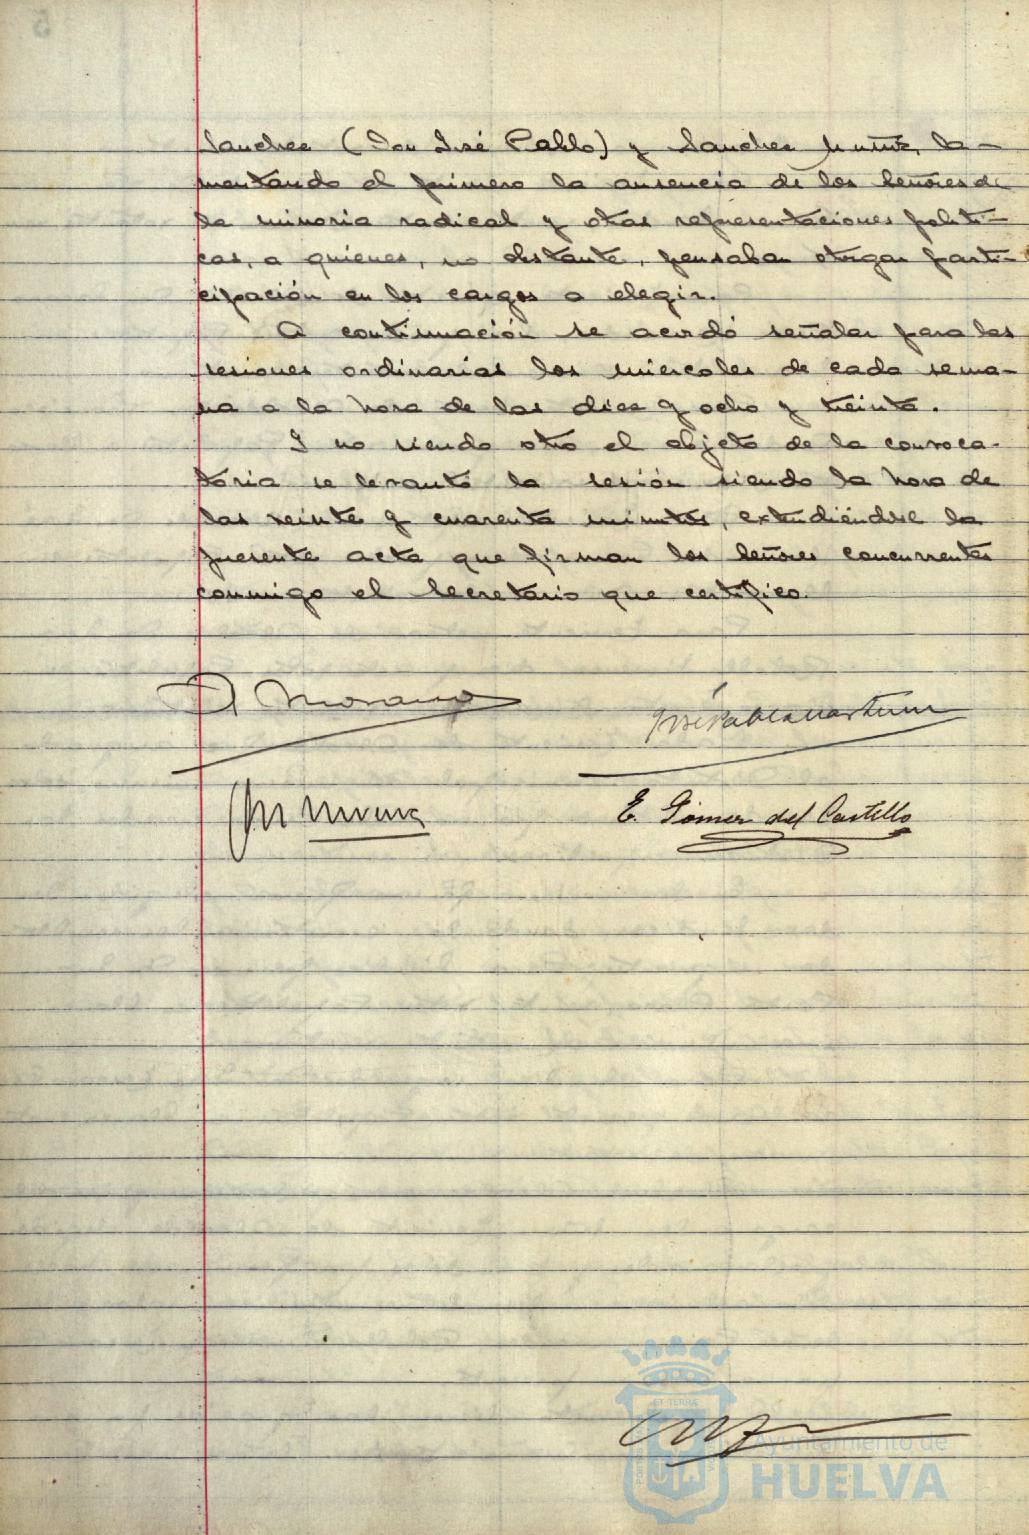 Sanchez (Don José Pablo) y Sanchez la-
mentando el primero la ausencia de los señores de
la minoria radical y otras representaciones politi-
cas, a quienes, no obstante, pensaban otorgar parti-
cipación en los cargos a elegir.
A continuación se acordó señalar para las
sesiones ordinarias los miercoles de cada sema-
na a la hora de las diez y ocho y treinta.
Y no siendo otro el objeto de la convoca-
toria se levantó la sesión siendo la hora de
las veinte y cuarenta minutos, extendiéndose la
presente acta que firman los señores concurrentes
conmigo el Secretario que certifico.
Moreno
José Pablo
E. Gómez del Castillo
Ayuntamiento de
HUELVA